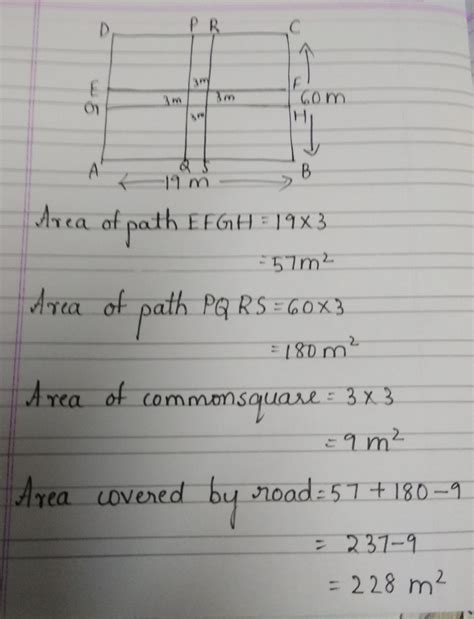 D P R C
3m
E F
3m 3m 60m
G H
3m
A Q S B
19 m
Area of path EFGH = 19×3
= 57m²
Area of path PQRS = 60×3
= 180 m²
Area of commonsquare = 3×3
= 9 m²
Area covered by road = 57 + 180 - 9
= 237-9
= 228 m²